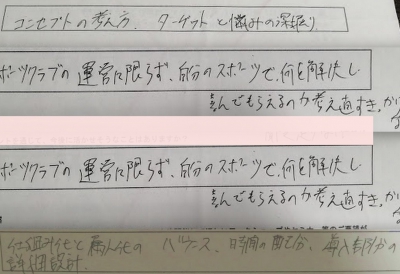 コンセプトの考え方、ターゲットと悩みの深堀り
ポーツクラブの運営に限らず、自分のスポーツで、何を解決し
喜んでもらえるのか考え直すき。か
ポーツクラブの運営に限らず、自分のスポーツで、何を解決し
喜んでもらえるのか考え直すき。か
仕組み化と属人化のバランス、時間の配分、
詳細設計.